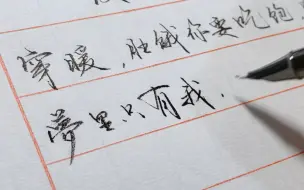 穿暖，肚饿你要吃饱
梦里只有我.